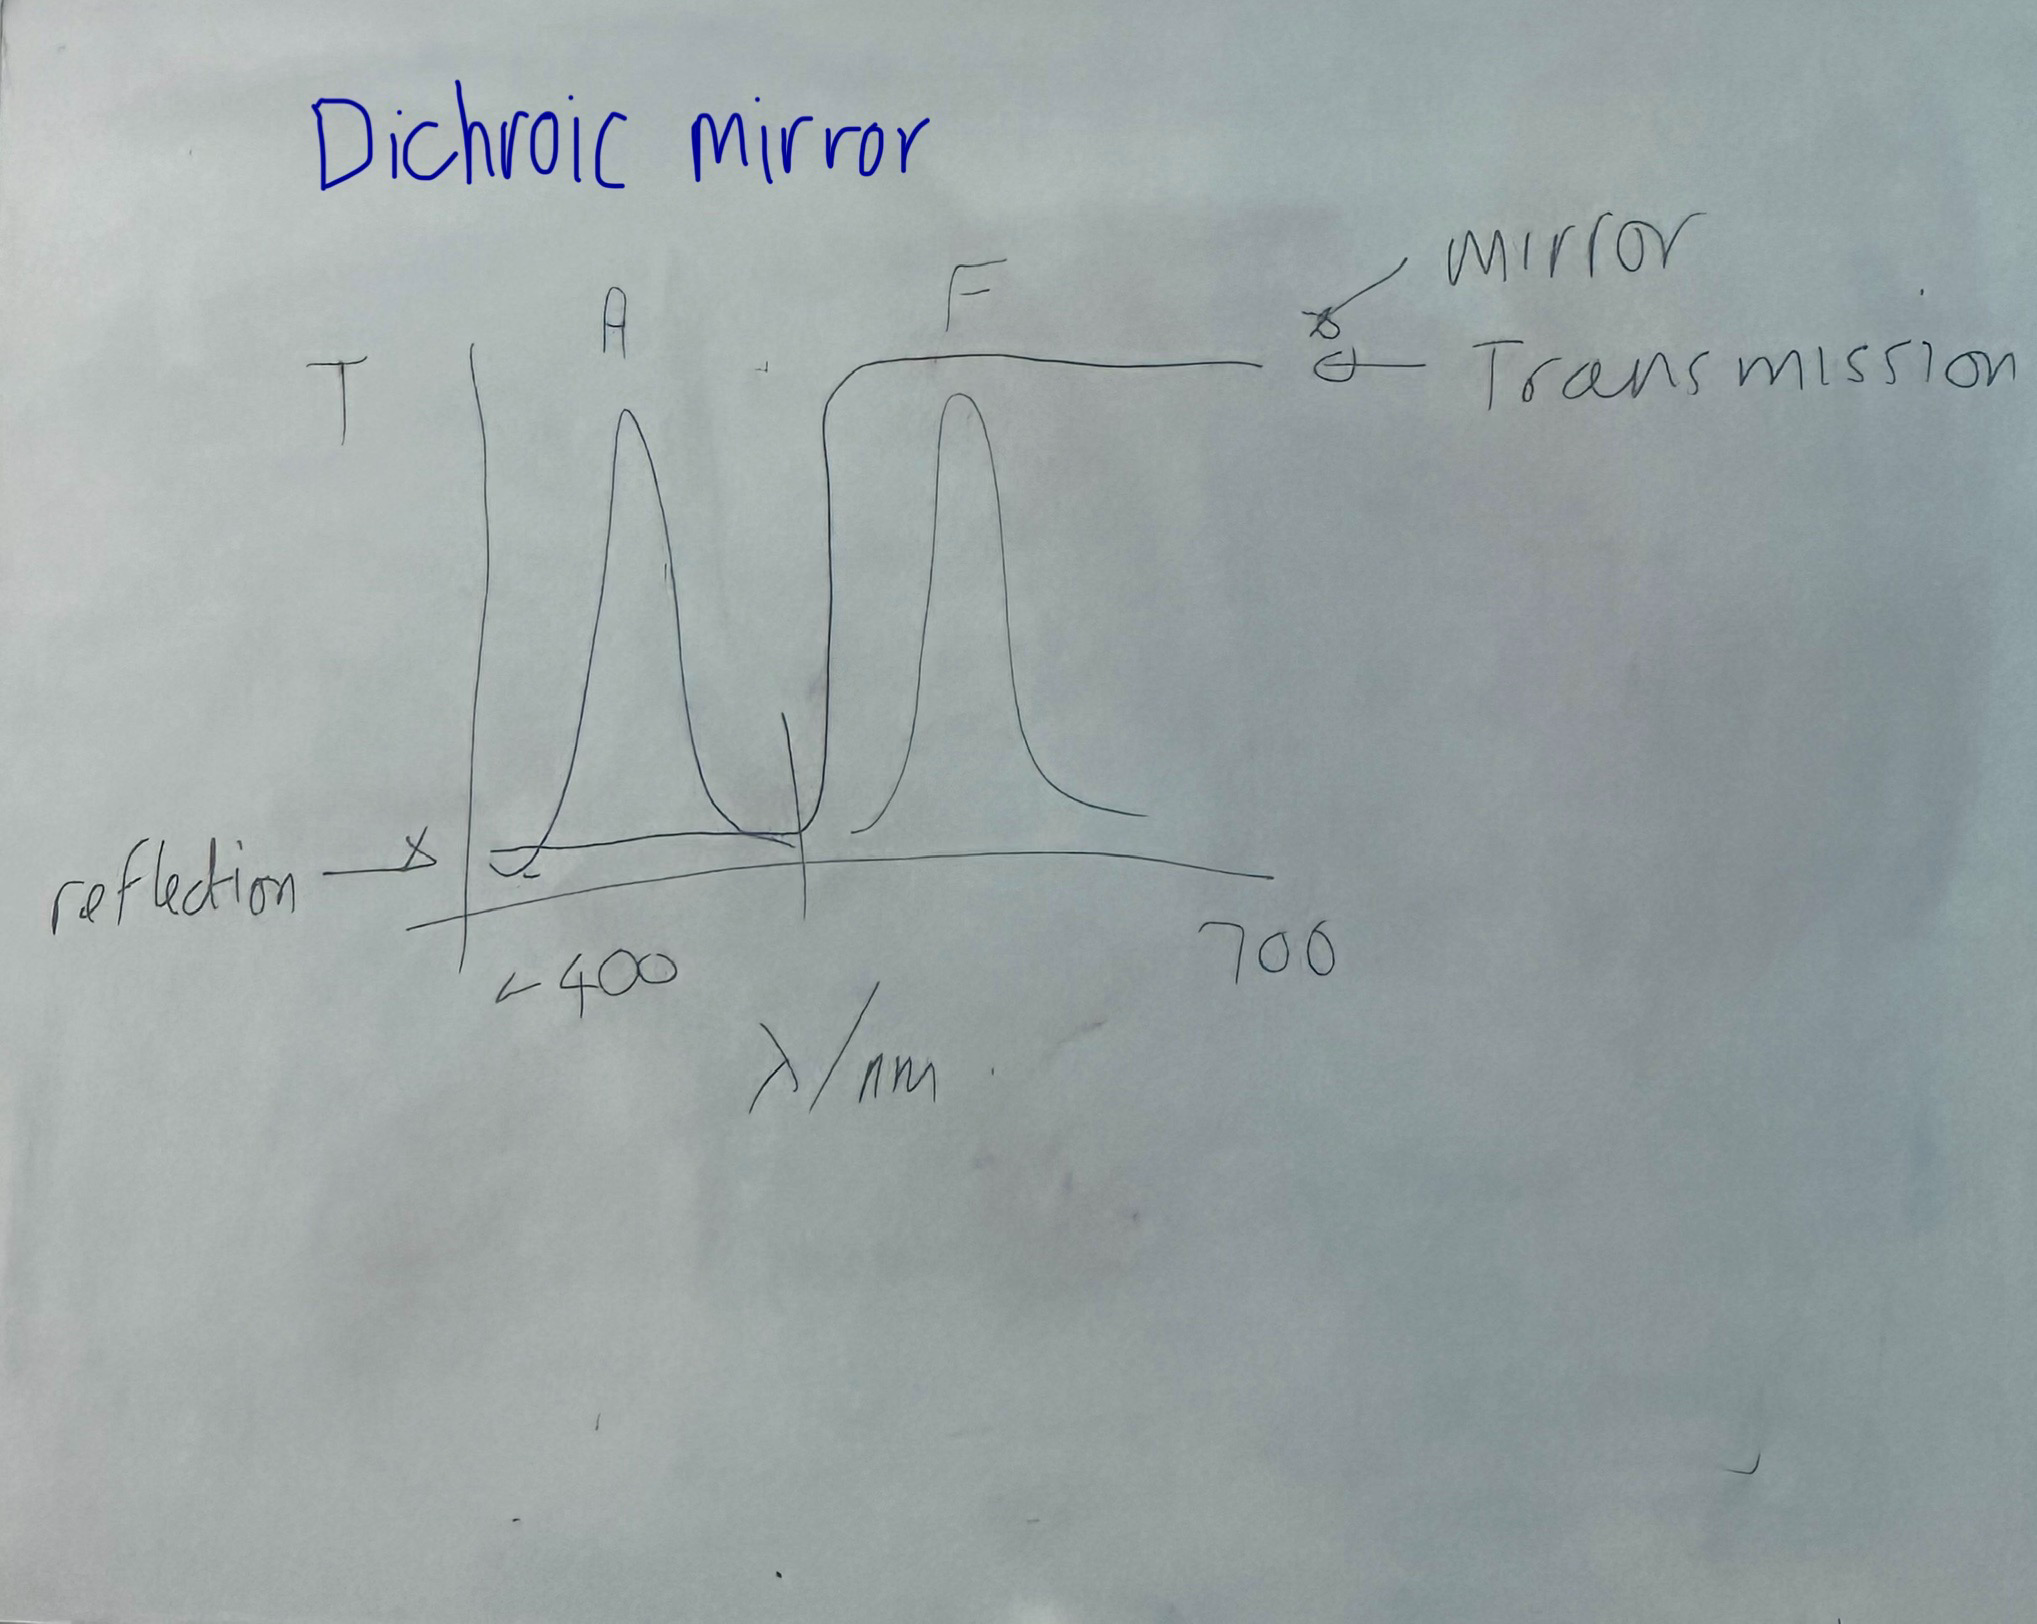 Dichroic mirror
mirror
A F
T
Transmission
reflection
400 700
λ/nm